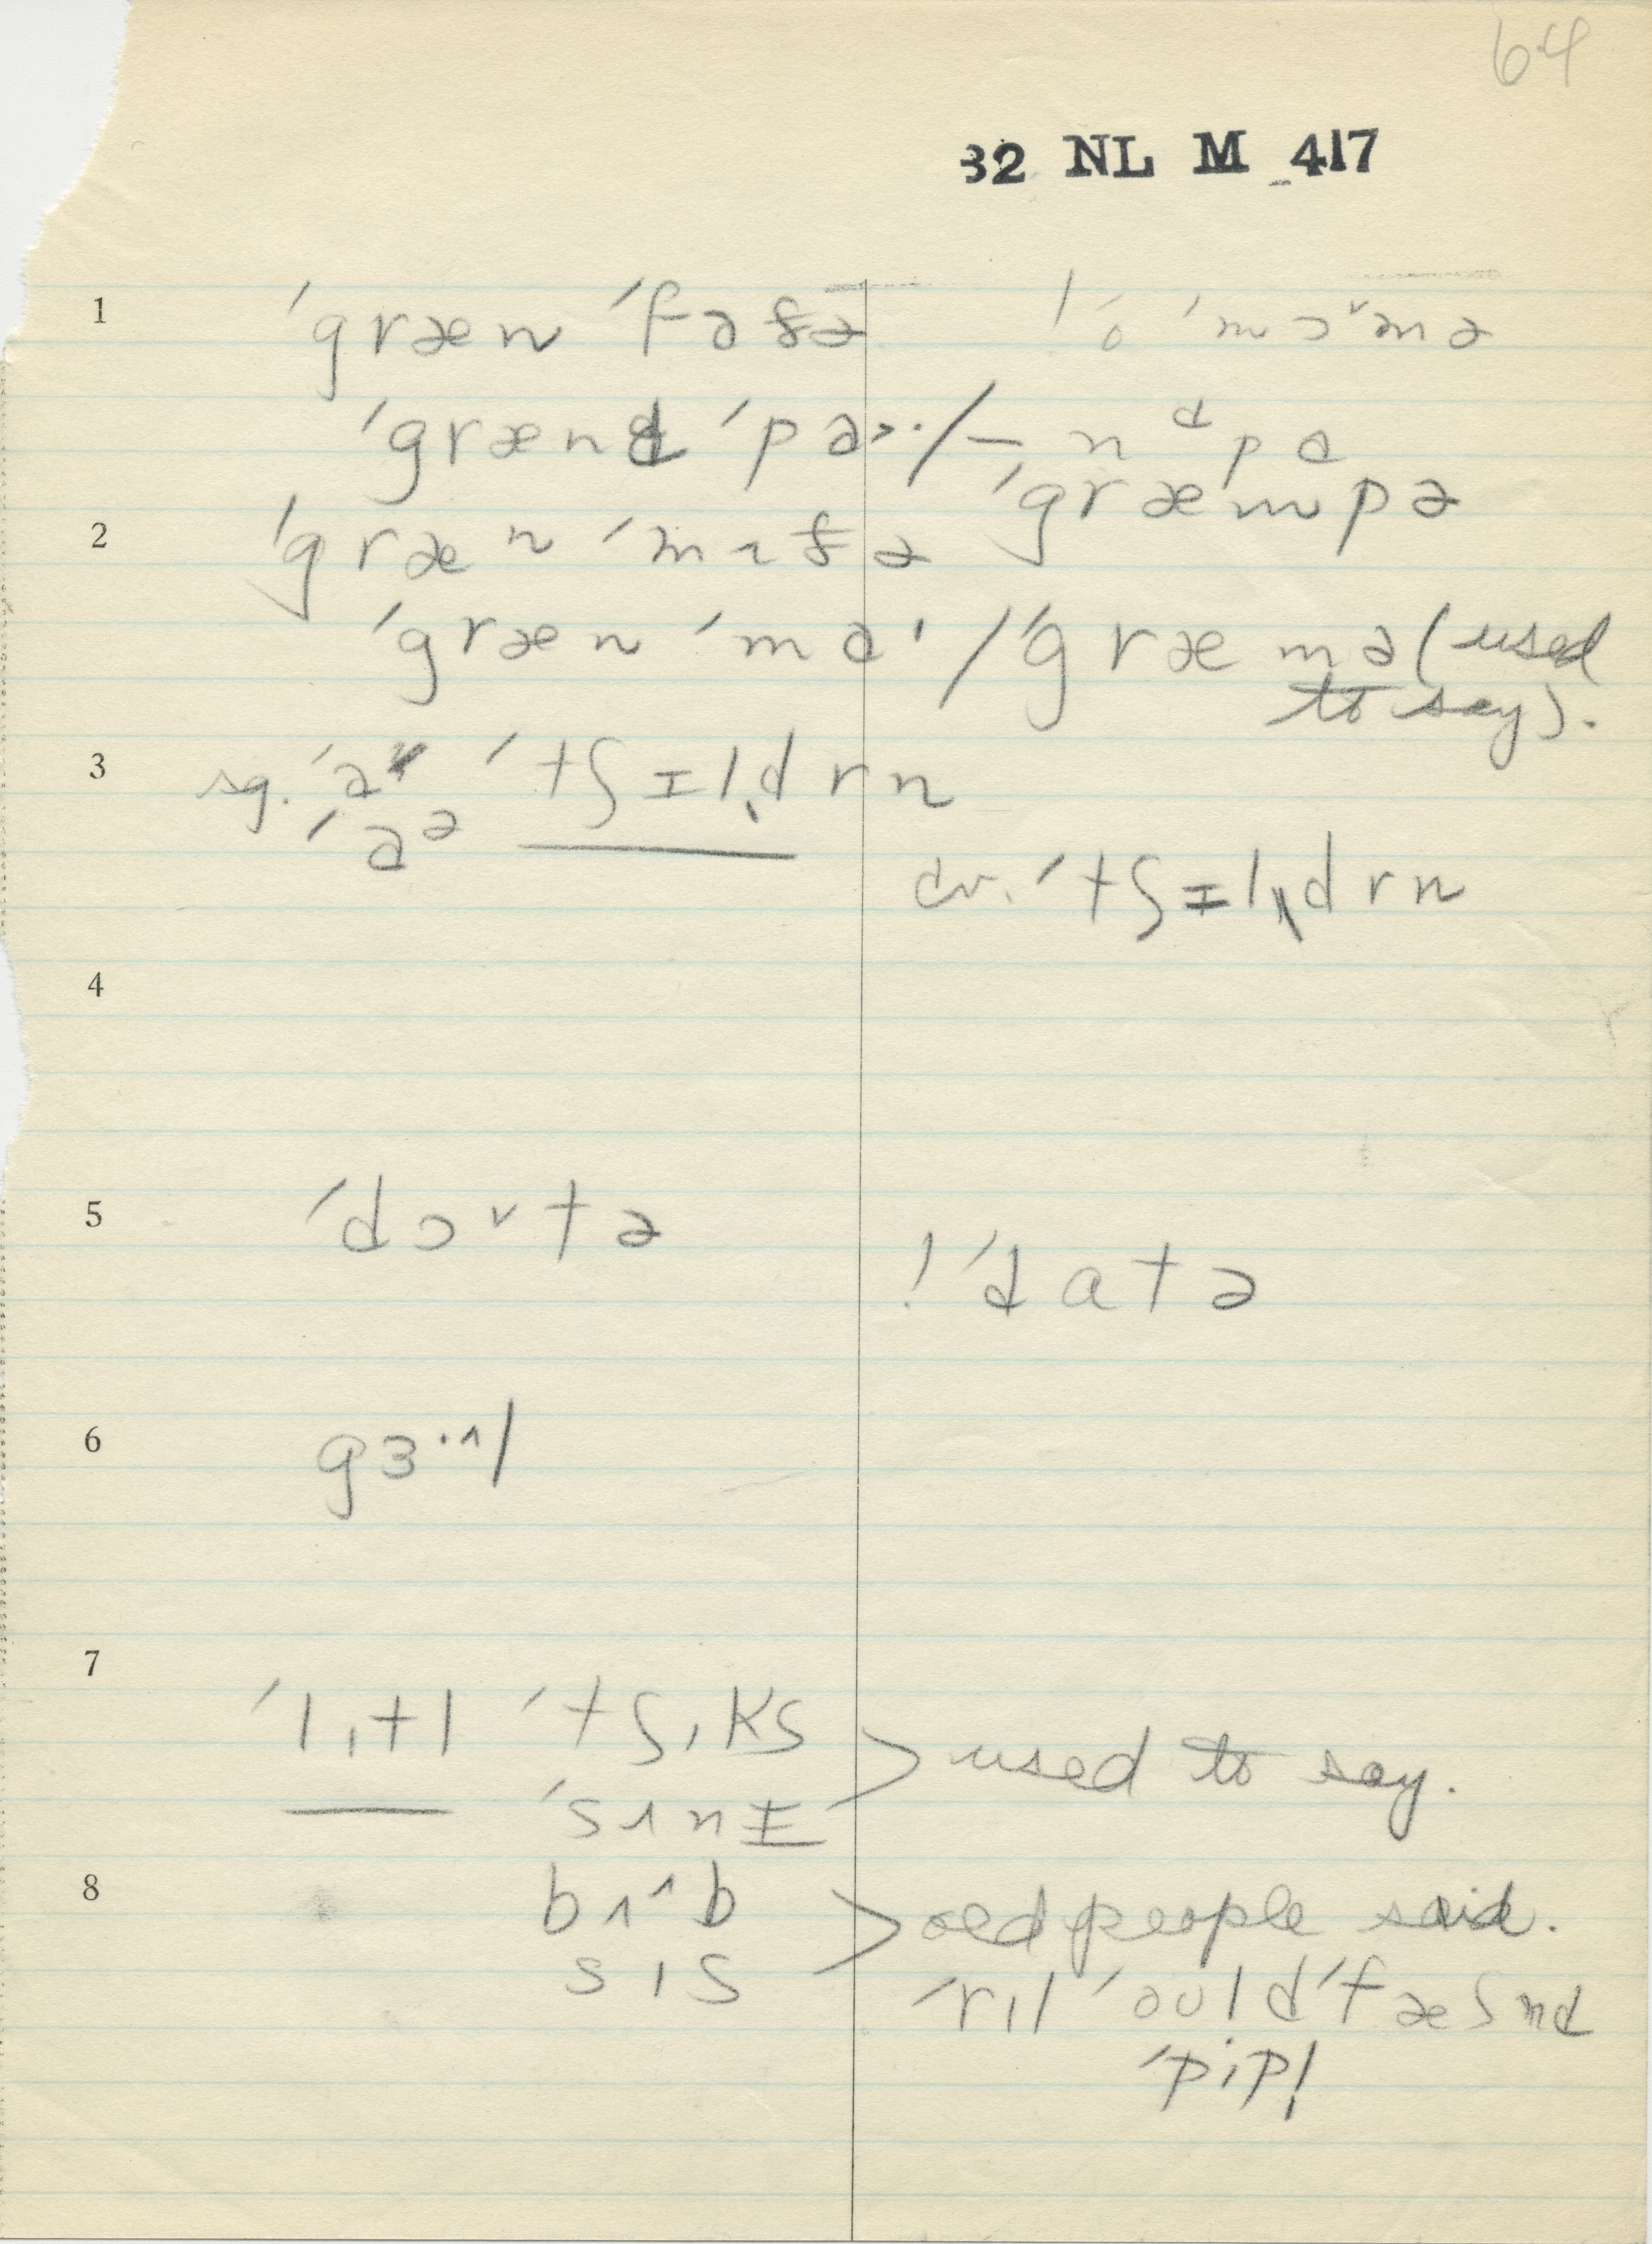 64
32 NL M 417
1 ˈgræn ˈfɑðə
! ˈo ˈmɔˇmə
ˈgrænd ˈpɑ>·/–nᵈpɑ
ˈgræmpə
2 ˈgræn ˈmʌðə
ˈgræn ˈmɑˈ/ˈgræmə (used
to say).
3 sg. ˈɑ ˈtʃɪl̩drn
ˈɑᵊ
cv. ˈtʃɪldrn
4
5 ˈdɔˇtə
! ˈdatə
6 gɜ·ˆl
7 ˈlɪtl ˈtʃɪks
> used to say.
ˈsʌnɪ
8 bʌˆb
> old people said.
sɪs
ˈril ˈould ˈfæʃnd
ˈpipl